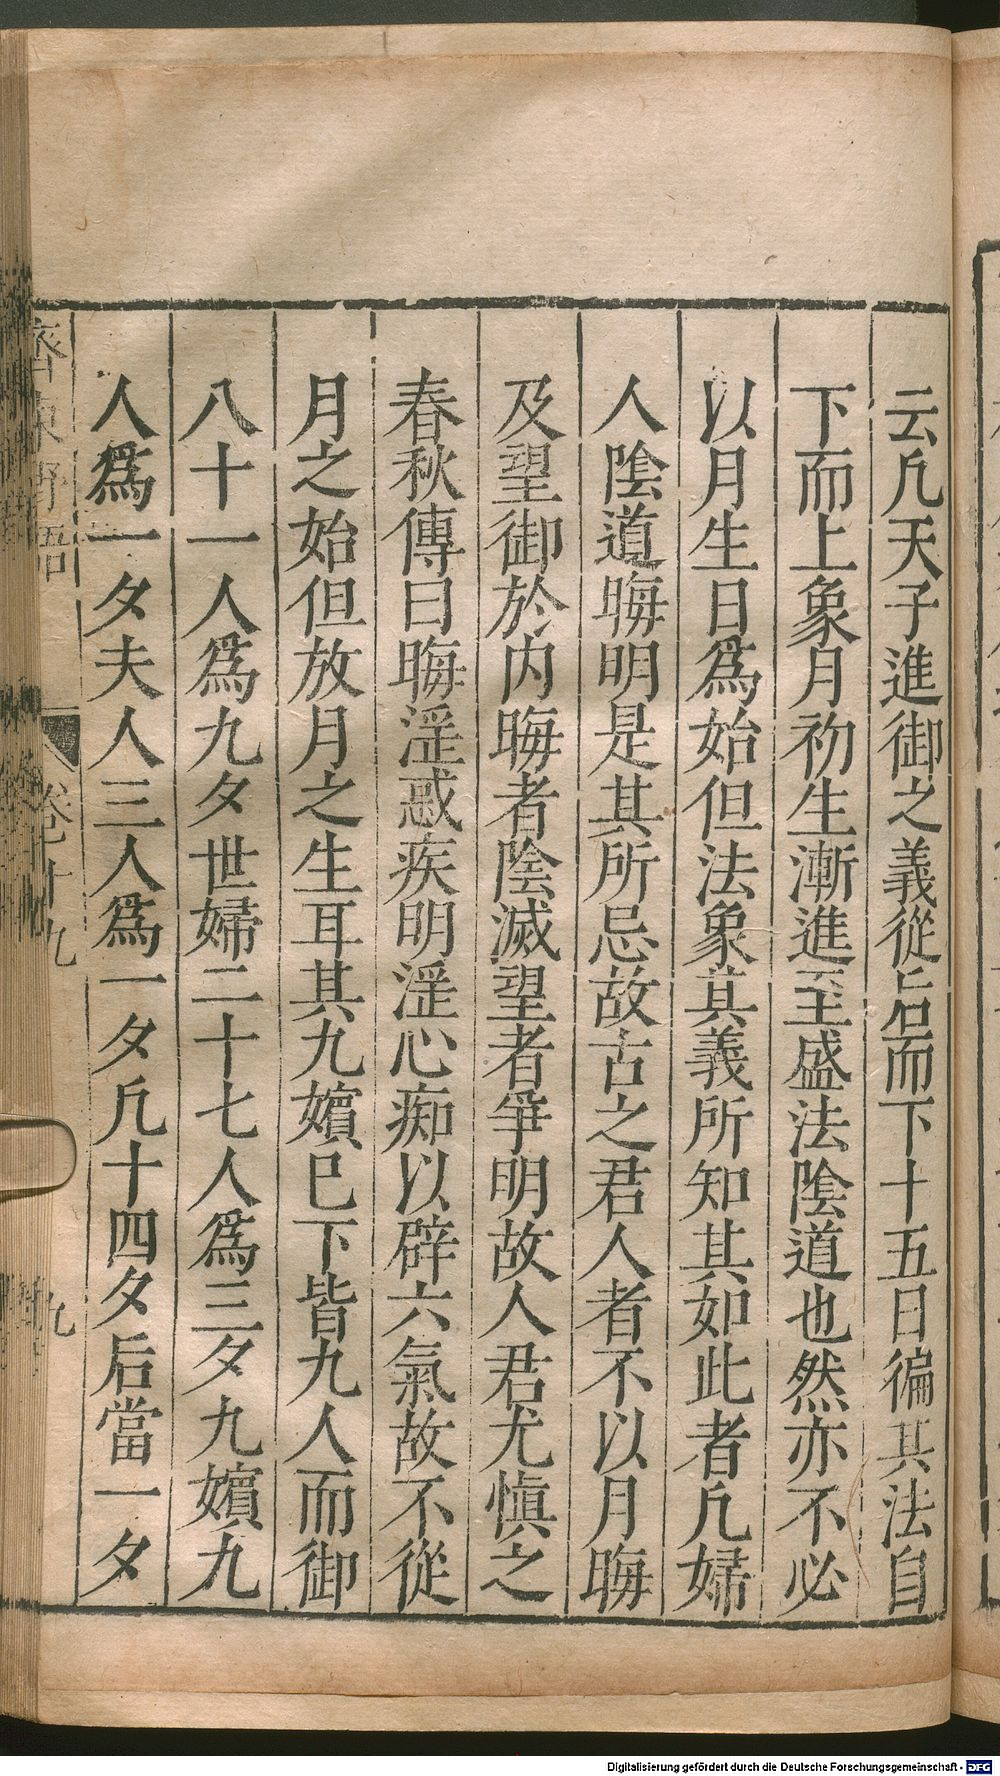 云凡天子進御之義從后而下十五日徧其法自
下而上象月初生漸進至盛法陰道也然亦不必
以月生日爲始但法象其義所知其如此者凡婦
人陰道晦明是其所忌故古之君人者不以月晦
及望御於内晦者陰滅望者爭明故人君尤慎之
春秋傳曰晦淫惑疾明淫心痴以辟六氣故不從
月之始但放月之生耳其九嬪已下皆九人而御
八十一人爲九夕世婦二十七人爲三夕九嬪九
人爲一夕夫人三人爲一夕凡十四夕后當一夕
齊東野語
卷十九
九
Digitalisierung gefördert durch die Deutsche Forschungsgemeinschaft - DFG